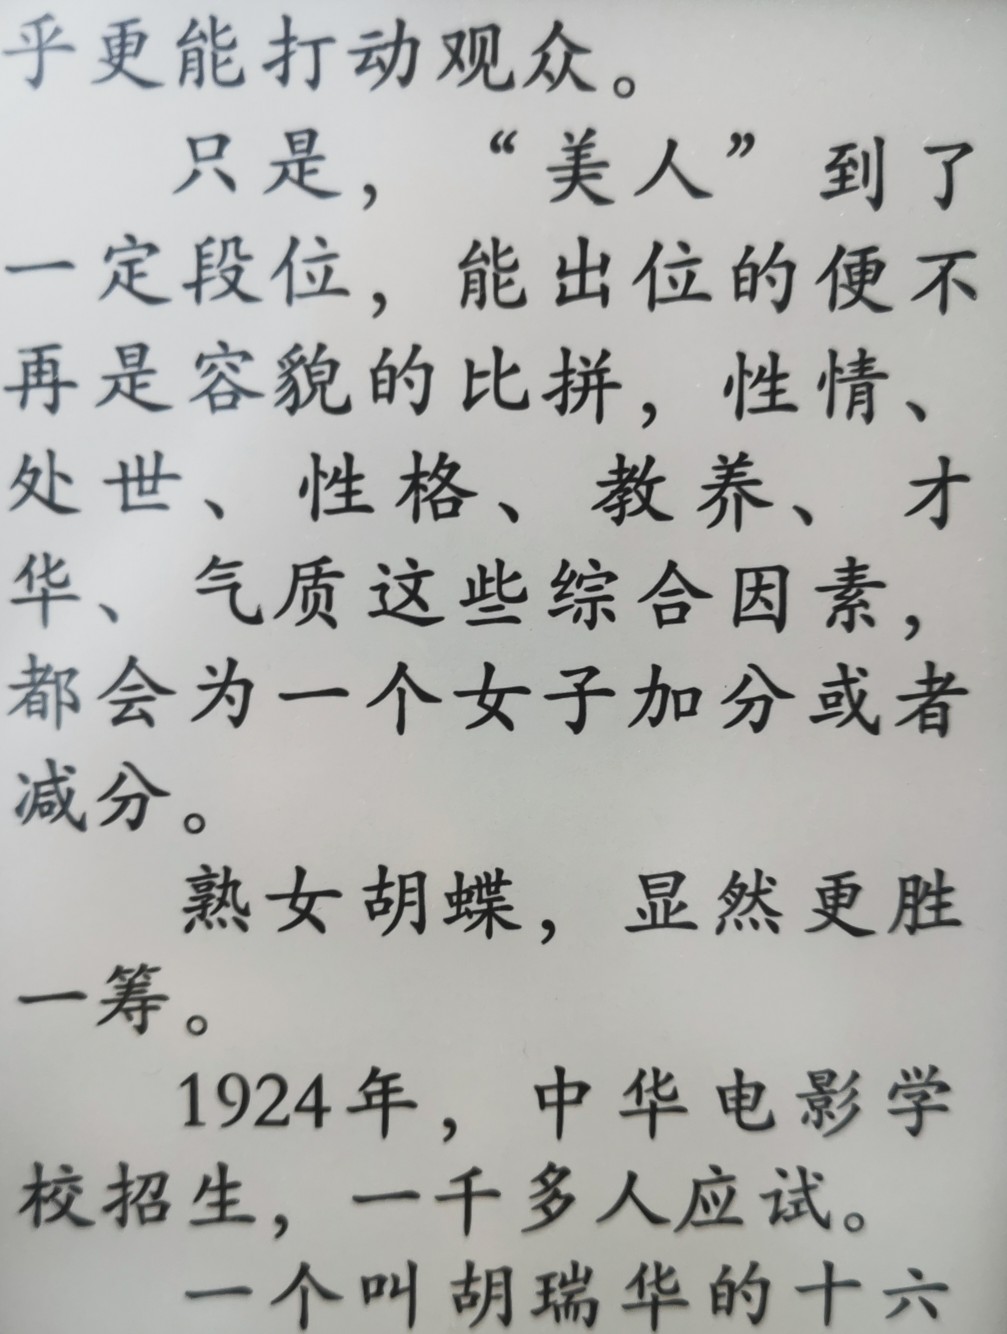 乎更能打动观众。
只是，“美人”到了
一定段位，能出位的便不
再是容貌的比拼，性情、
处世、性格、教养、才
华、气质这些综合因素，
都会为一个女子加分或者
减分。
熟女胡蝶，显然更胜
一筹。
1924年，中华电影学
校招生，一千多人应试。
一个叫胡瑞华的十六